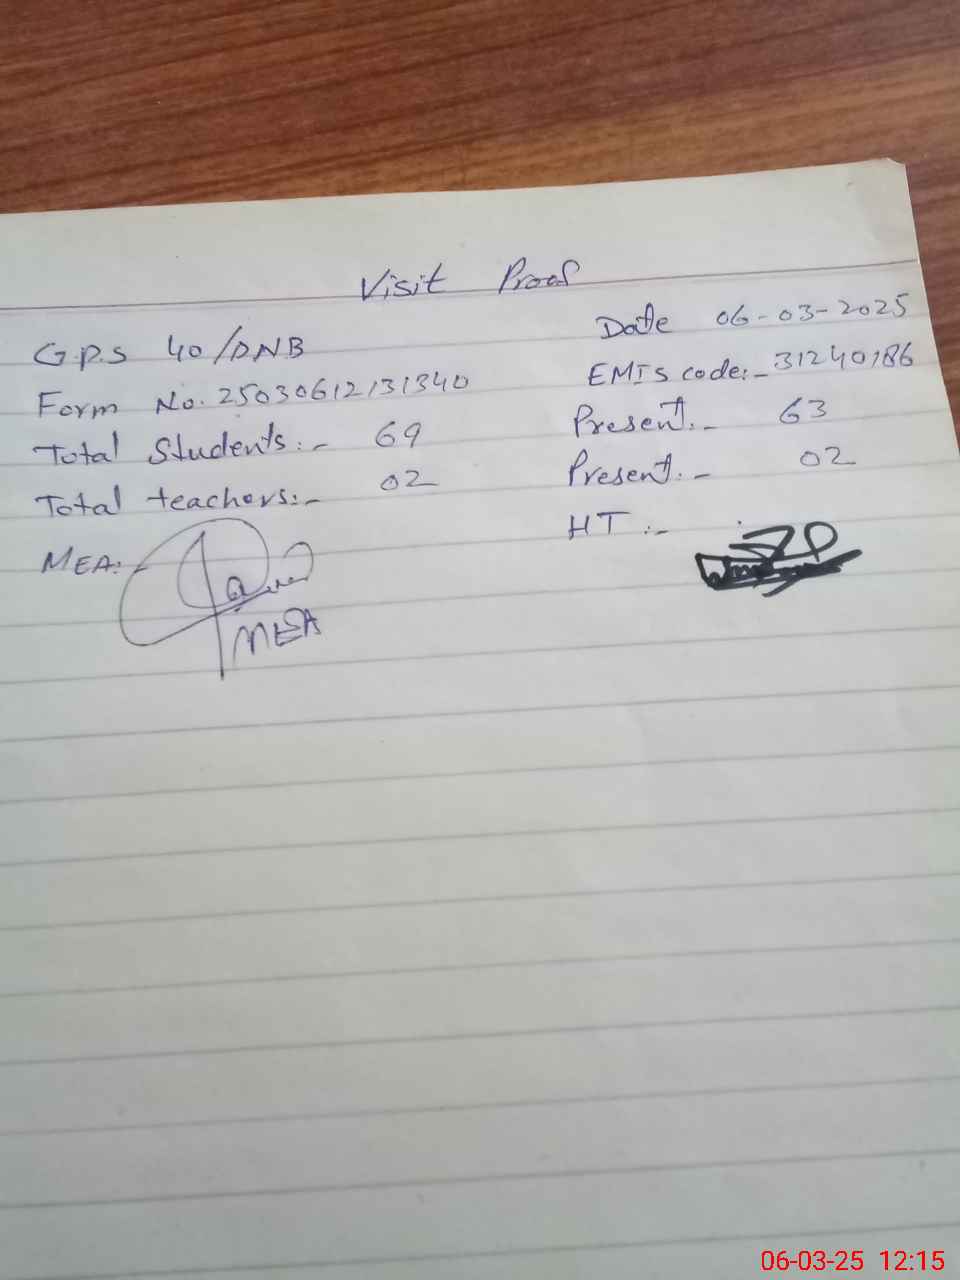 Visit Proof
G.P.S 40/DNB Date 06-03-2025
Form No. 25030612131340 EMIS code:- 31240186
Total Students:- 69 Present:- 63
Total teachers:- 02 Present:- 02
MEA:- HT:-
MEA
06-03-25 12:15